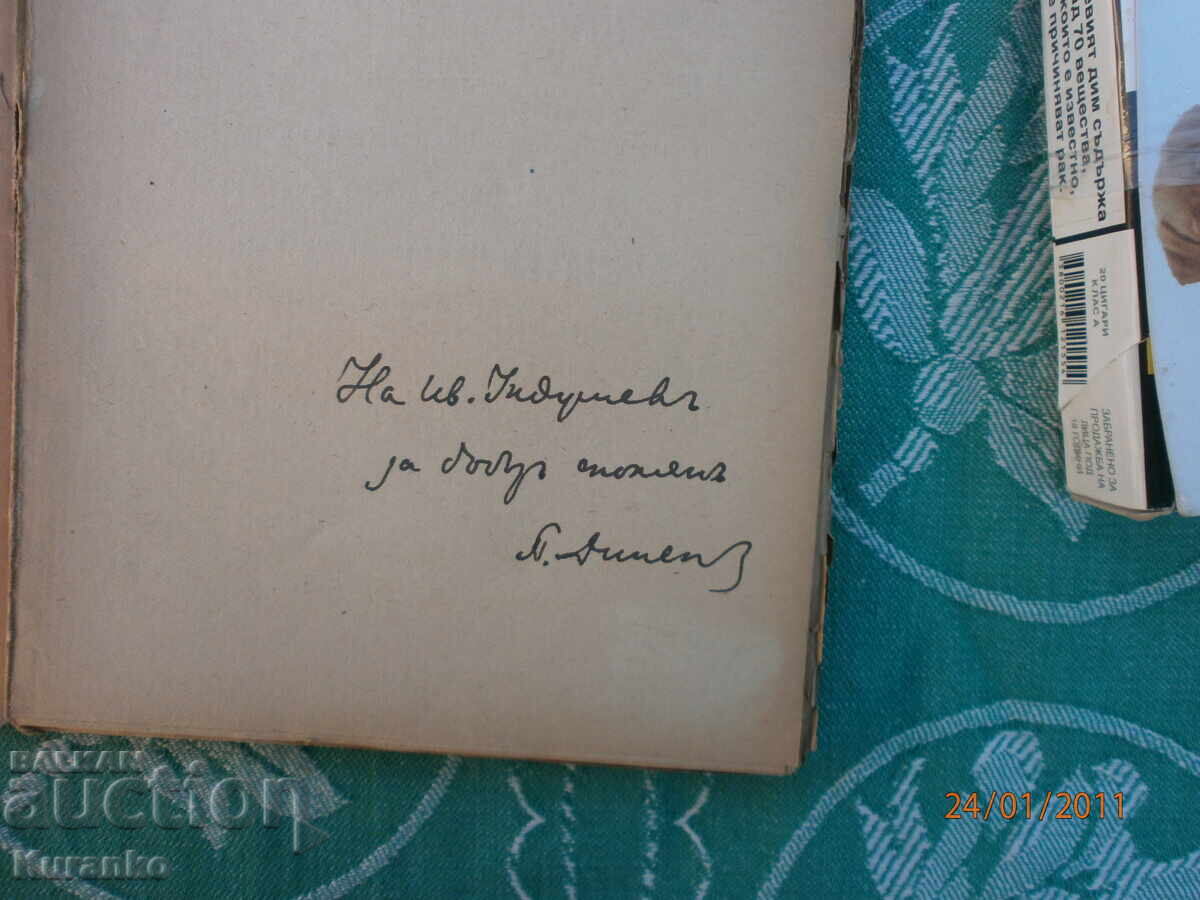 На Ив. Индушевъ
за добъръ споменъ
П. Динековъ
евият дим съдържа
ад 70 вещества,
които е известно,
е причиняват рак.
20 ЦИГАРИ
КЛАС А
ЗАБРАНЕНО ЗА
ПРОДАЖБА НА
ЛИЦА ПОД
18 ГОДИНИ
BALKAN
auction
Kuranko
24/01/2011